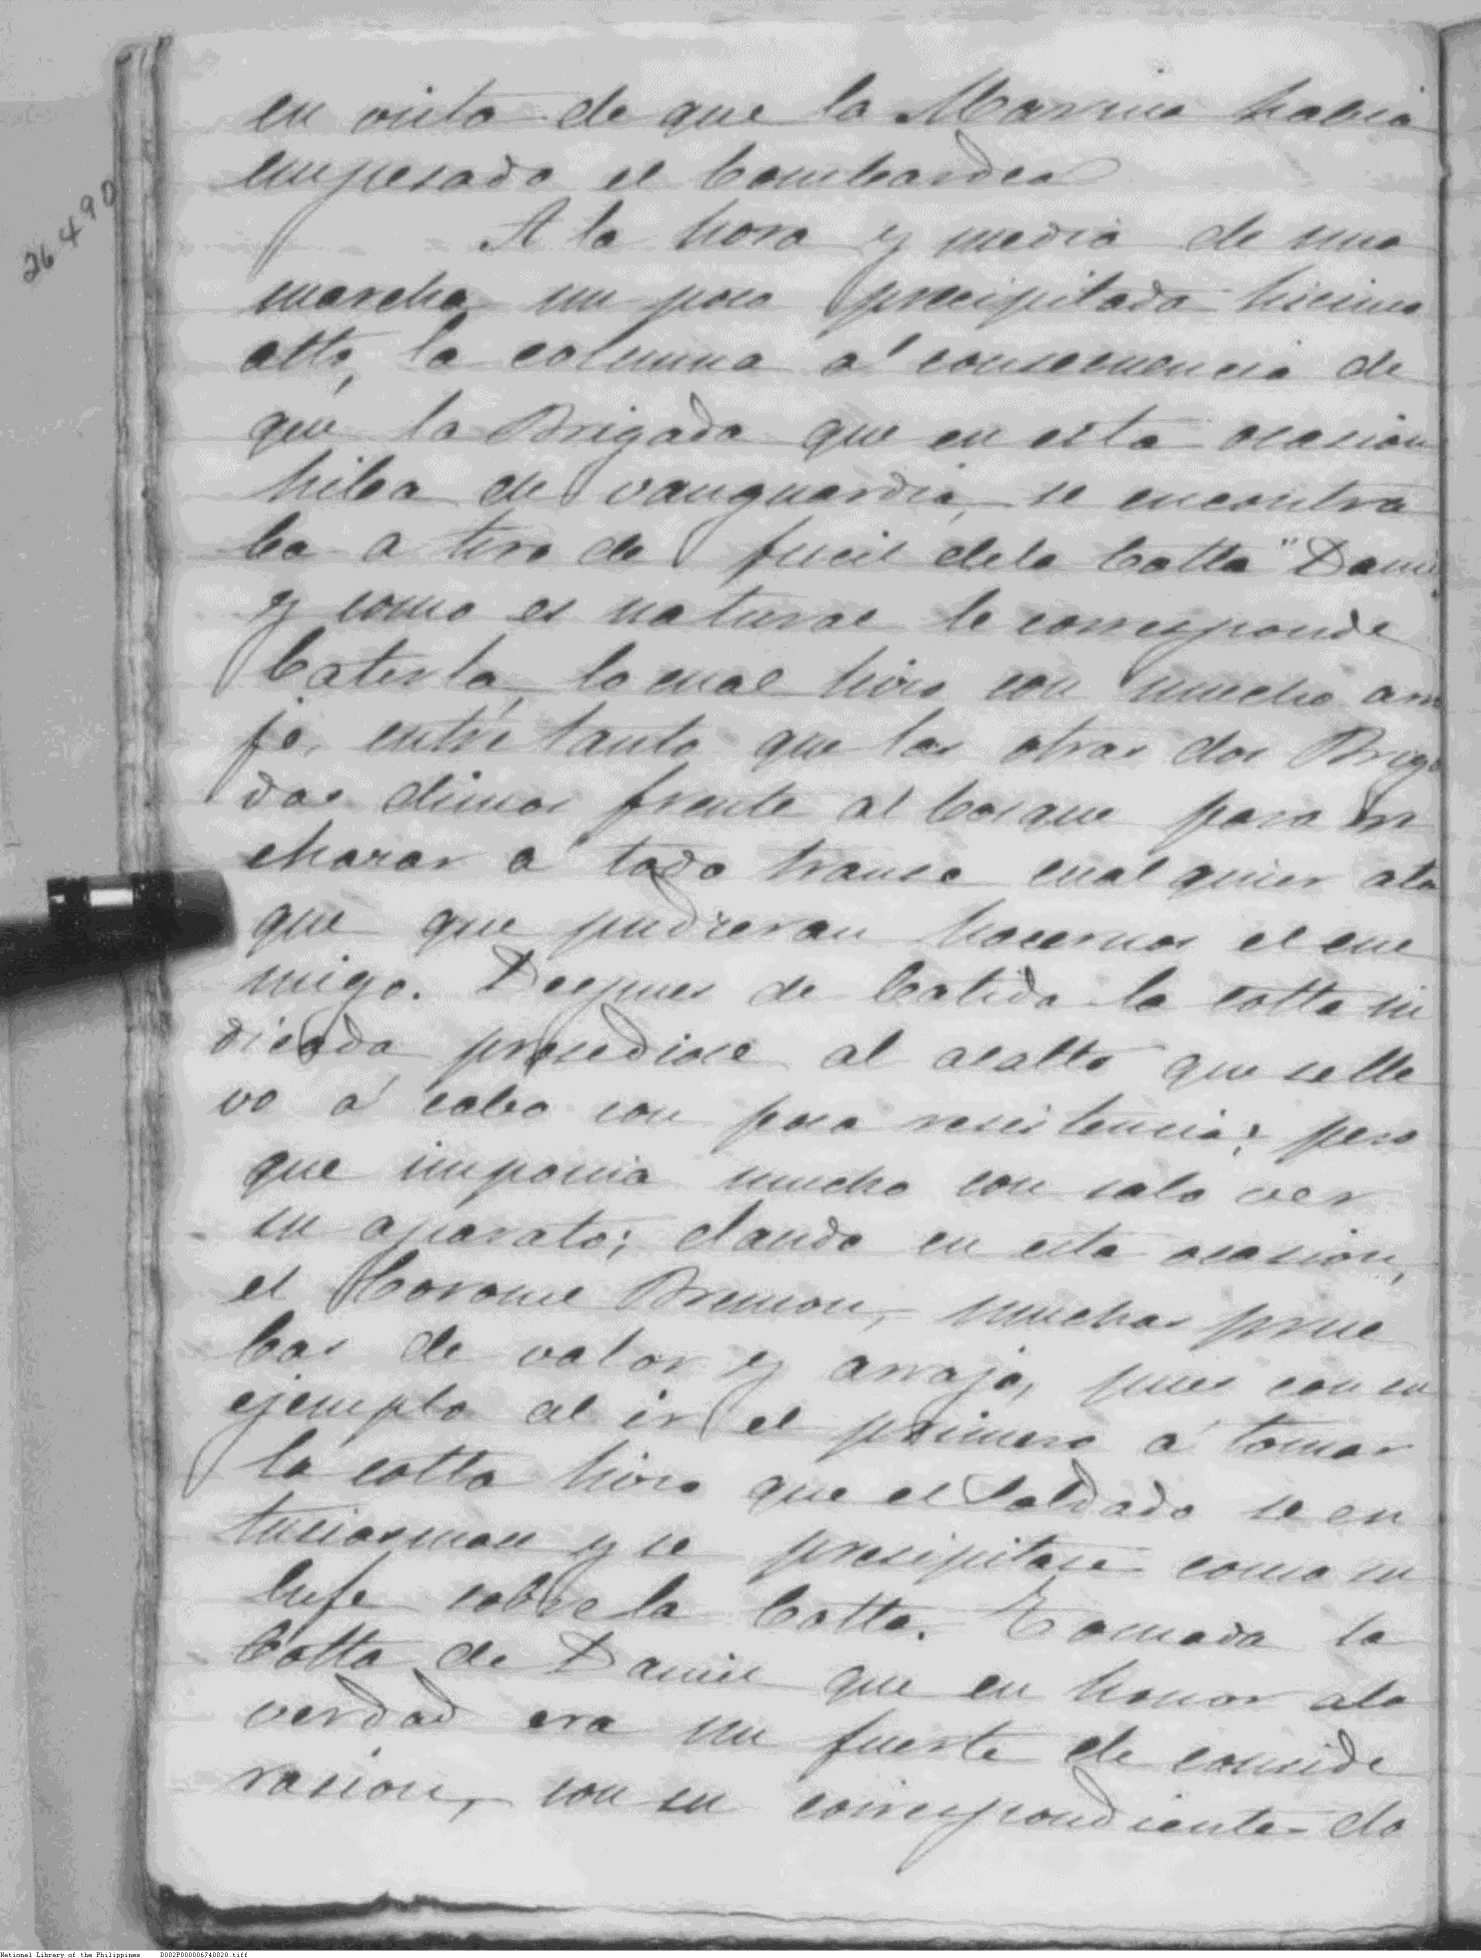 26490
en vista de que la Marina habia
empesado el bombardeo
A la hora y media de una
marcha un poco precipitada hicimos
alto, la columna á consecuencia de
que la Brigada que en esta ocasion
hiba de vanguardia, se encontra
ba a tiro de fucil dela Cotta "Daniel
y como es natural le corresponde
batirla, lo cual hiso con mucho arro
jo, entre tanto que las otras dos Briga
das dimos frente al bosque para re
chazar a todo transe cualquier ata
que que pudieran hacernos el ene
migo. Despues de batida la cotta in
dicada presediose al asalto que selle
vo á cabo con poca resistencia; pero
que imponia mucho con solo ver
su aparato; dando en esta ocasion,
el Coronel Bremon, muchas prue
bas de valor y arrojo, pues con su
ejemplo al ir el primero á tomar
la cotta hiso que el soldado se en
tusiasmase y se presipitase como su
Gefe sobre la Cotta. Tomada la
Cotta de Daniel que en honor ala
verdad era un fuerte de conside
rasion, con su correspondiente do
National Library of the Philippines D002P000006740020.tiff